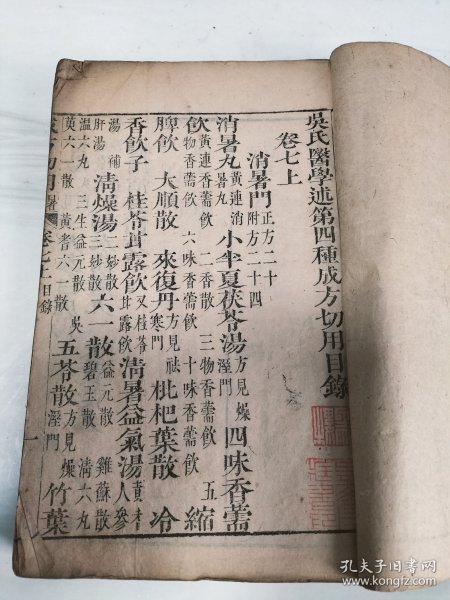 吳氏醫學述第四種成方切用目錄
卷七上
消暑門 正方二十 附方二十四
消暑丸 黃連消暑丸 小半夏茯苓湯 方見燥溼門 四味香薷
飲 黃連香薷飲 二香散 三物香薷飲 五物香薷飲 六味香薷飲 十味香薷飲 縮
脾飲 大順散 來復丹 方見祛寒門 枇杷葉散 冷
香飲子 桂苓甘露飲 又桂苓甘露飲 清暑益氣湯 黃耆人參
湯 補肝湯 清燥湯 二妙散 三妙散 六一散 益元散 雞蘇散 碧玉散 清六丸
溫六丸 三生益元散 吳茰六一散 黃耆六一散 五苓散 方見燥溼門 竹葉
方切用 卷七上目錄 一
孔夫子旧书网
www.kongfz.com